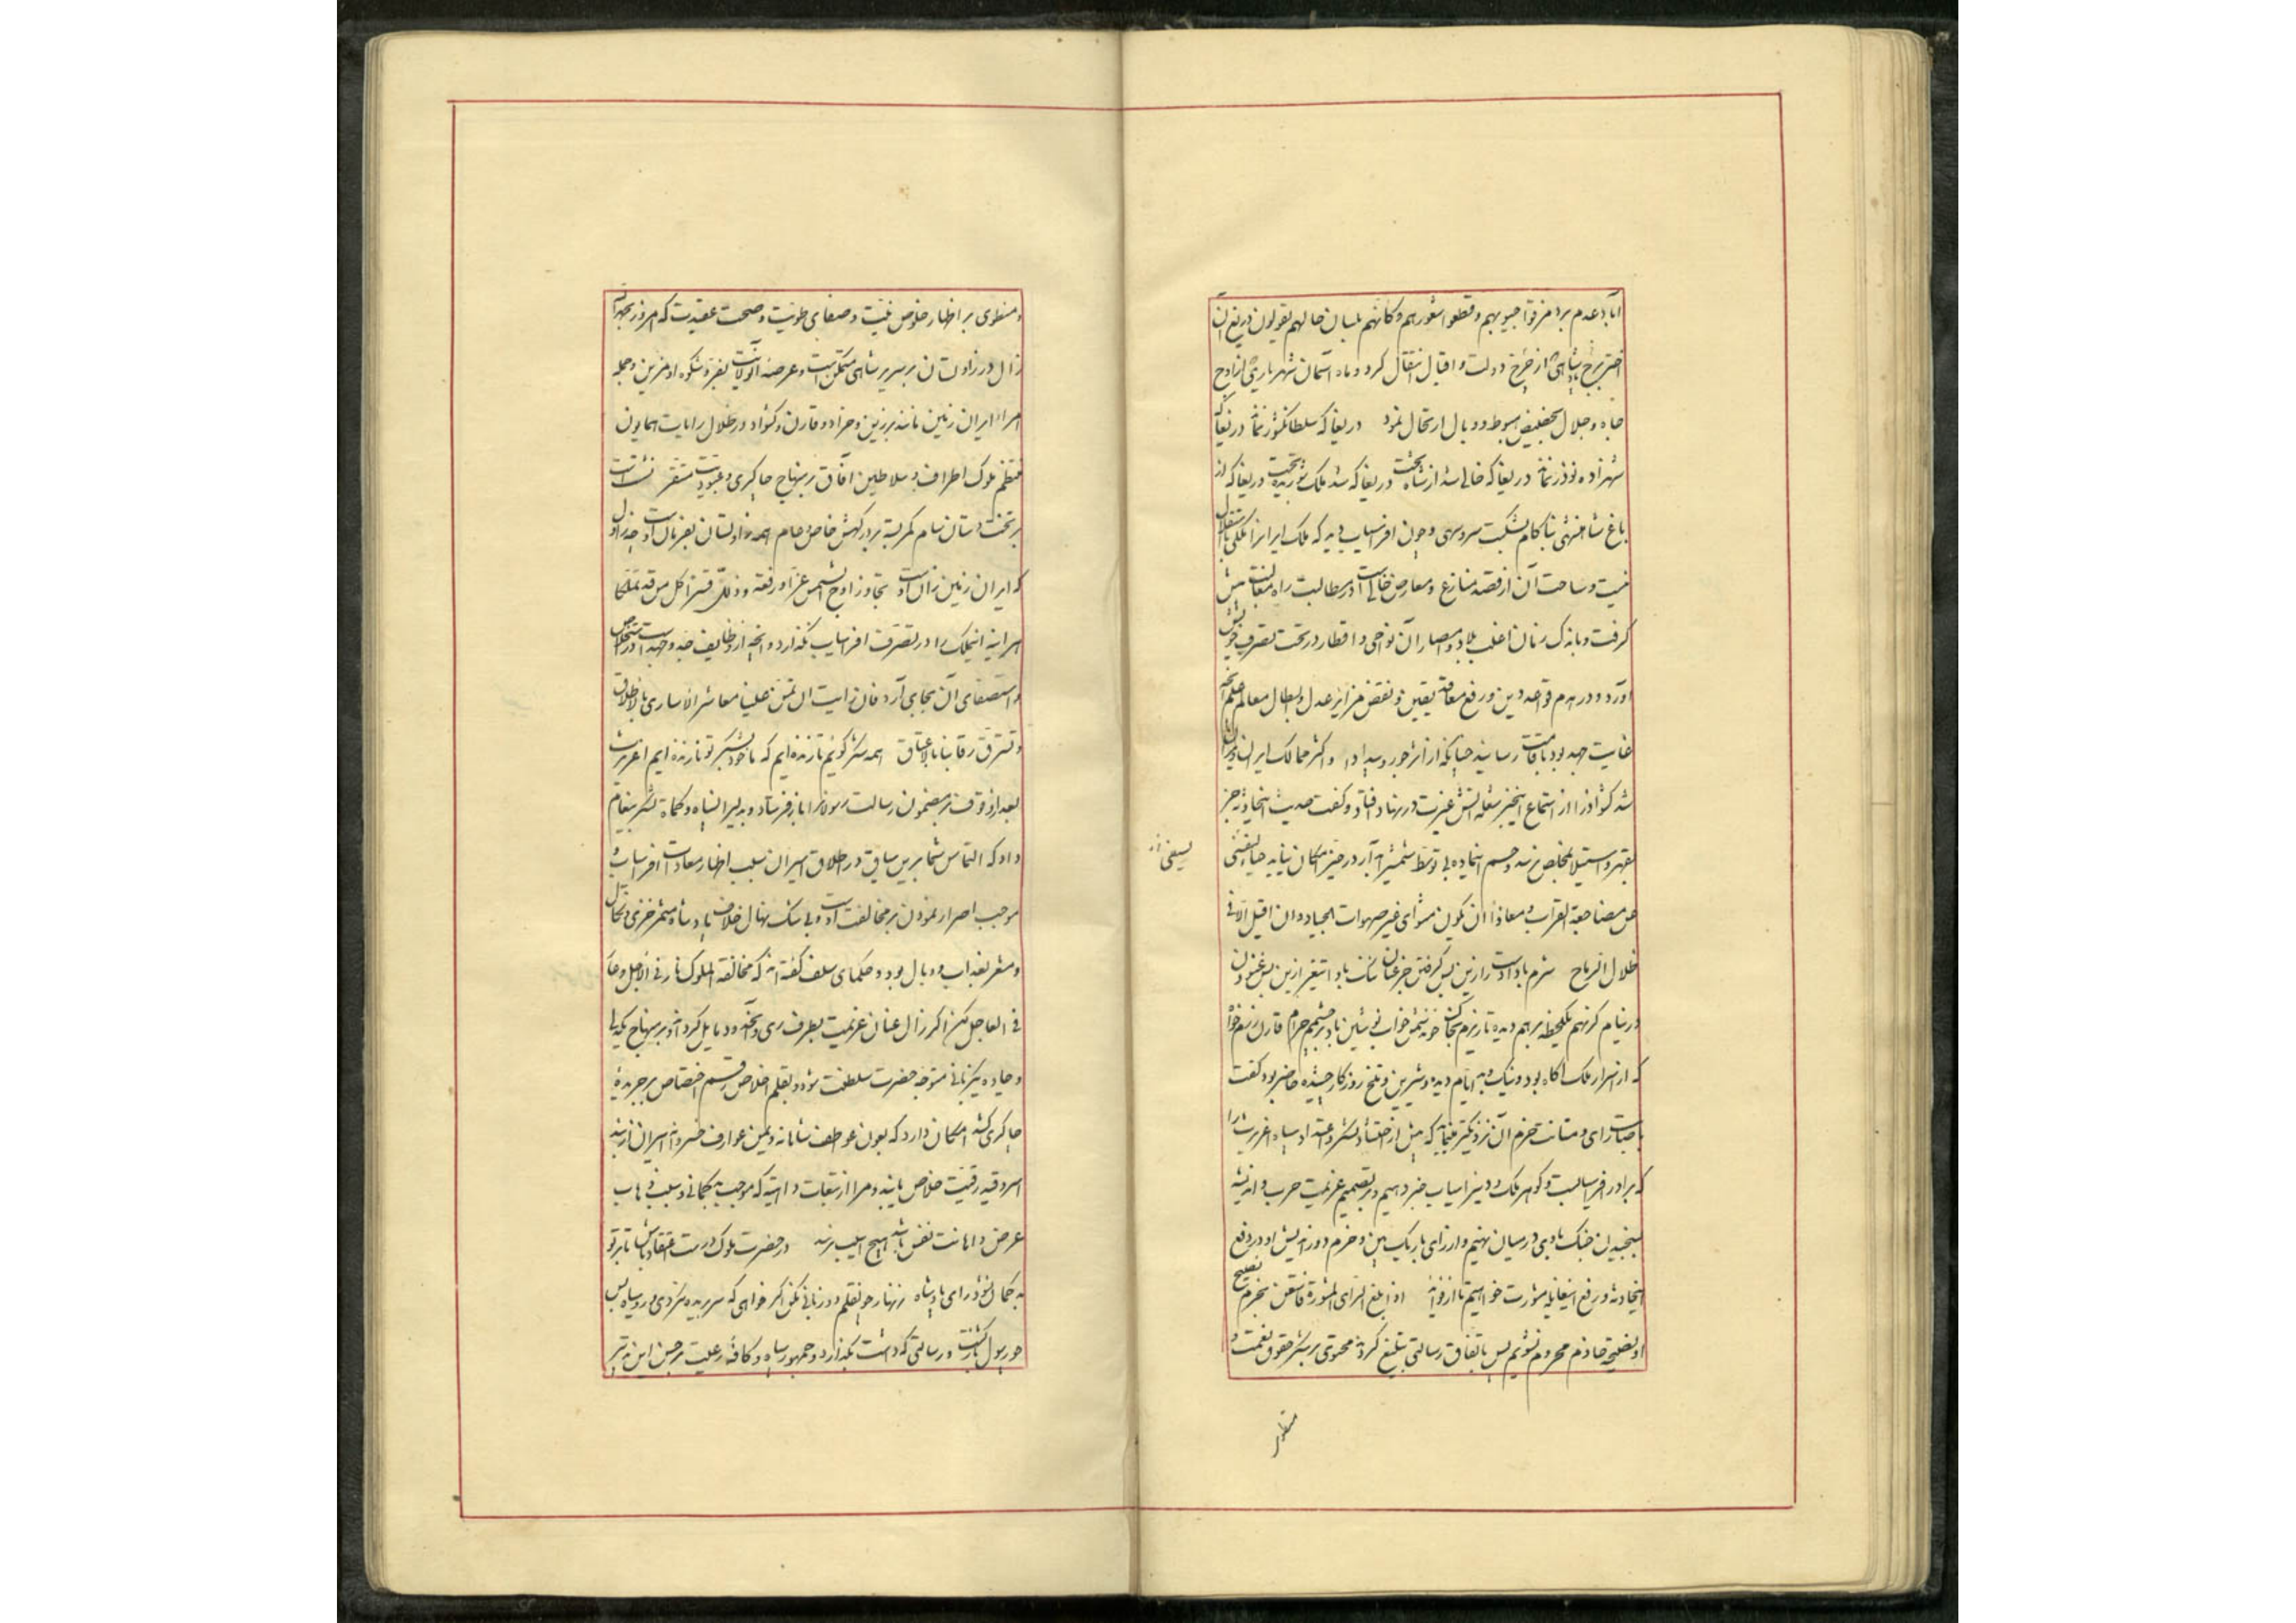 آباد عدم برد مزقوا جیوبهم و قطعوا شعورهم و کانهم بلسان حالهم یقولون دریغ آن
اختر برج پادشاهی از چرخ دولت و اقبال انتقال کرد و ماه آسمان شهریاری از اوج
جاه و جلال بحضیض هبوط و وبال ارتحال نمود دریغا که سلطان کشور نماند دریغا که
شهزاده نوذر نماند دریغا که خالی شد از شاه تخت دریغا که شد ملک شوریده بخت دریغا که از
باغ شاهنشهی بناکام بشکست سرو سهی و چون افراسیاب دید که ملک ایرانرا ملکی باستقلال
نیست و ساحت آن از قصد منازع و معارض خالی است در مطالبت راه مبالغت پیش
گرفت و باندک زمان اغلب بلاد و امصار آن نواحی و اقطار در تحت تصرف خویش
آورد و در هدم قواعد دین و رفع معاقد یقین و نقض مراثر عدل و ابطال معالم حلم آنچه
غایت جهد بود باقامت رسانید چنانکه از اثر جور و بیداد او اکثر ممالک ایران ویران
شد کشواد را از استماع اینخبر شعله آتش غیرت در نهاد افتاد و گفت حدیث اینحادثه جز
بقهر و استیلا بخلاص نرسد و حسم اینماده بی توسط شمشیر آبدار در حیز امکان نیاید
عن مضاجعة القراب و معاذا ان یکون مثوای غیر صهوات الجیاد و ان اقیل الا فی
ظلال الرماح شرم باد از زین پس گرفتن جز عنان ننگ باد از تیغ ازین پس غنودن
در نیام گر نهم یکلحظه بر هم دیده تا ریزم بخاک خون دشمن خواب نوشین باد بر چشمم حرام قارن رزم خواه
که از اسرار ملک آگاه بود و نیک و بد ایام دیده و شیرین و تلخ روزگار چشیده حاضر بود گفت
باصابت رای و متانت حزم آن نزدیکتر مینماید که پیش از احتشاد لشکر و اعتداد سپاه اغریرث را
که برادر افراسیابست و گوهر ملک و دین را سیاب خبر دهیم و بر تصمیم عزیمت حرب و اندیشه
بسیجیدن جنگ با وی در میان نهیم و از رای باریک بین و حزم دور اندیش او در دفع
اینحادثه و رفع اینغایله مشورت خواهیم تا از فواید اذا بلغ الرای المشورة فاستعن بحزم نصیح
او نصیحة حازم محروم نشویم پس باتفاق رسالتی تبلیغ کردند محتوی بر نشر حقوق نعمت و
منطوی
و منطوی بر اظهار خلوص نیت و صفای طویت و صحت عقیدت که امروز بحمدالله
زال در زاولستان بر سریر شاهی متمکن است و عرصه آنولایت بفر و شکوه او مزین و جمله
امراء ایران زمین مانند برزین و خراد و قارن و کشواد در ظلال رایات همایون
منتظم ملوک اطراف و سلاطین آفاق بر منهاج چاکری و عبودیت مستقر نشسته است
بر تخت دستان سام کمر بسته بر درگهش خاص و عام همه زاولستان بفرمان اوست چه زاول
که ایران زمین زان اوست تجاوز اوج الشمس عزا و رفعة و ذلل قسرا کل من قد تملکا
هر آینه اینملک را در تصرف افراسیاب نگذارد و آنچه از وظایف جد و جهد است در استخلاص
و استصفای آن بجای آرد فان رایت ان تمن علینا معاشر الاساری بالاطلاق
و تسترق رقابنا بالاعتاق همه شکر گوئیم تا زنده ایم که ما خود بشکر تو نازنده ایم اغریرث
بعد از وقوف بر مضمون رسالت رسولانرا باز فرستاد و بدلیران سپاه و کماة لشکر پیغام
داد که التماس شما برین سیاق در اطلاق اسیران سبب اظهار معادات افراسیاب و
موجب اصرار نمودن بر مخالفت اوست و بی شک نهال خلاف پادشاه مثمر خزی و نکال
و مشعر بعذاب و وبال بود و حکمای سلف گفته اند که مخالفة الملوک نار فی الآجل و عار
فی العاجل لکن اگر زال عنان عزیمت بطرف ری و آنحدود مایل گرداند و بر منهاج یکدلی
و جاده یکزبانی متوجه حضرت سلطنت شود و بقلم اخلاص رقم اختصاص بر جریده
چاکری کشد امکان دارد که بعون عواطف شاهانه و یمن عوارف خسروانه اسیران از بند
اسر و قید رقیت خلاص یابند و مرا از تبعات دامیه که موجب بدگمانی و سبب ذهاب
عرض و اهانت نفس باشد هیچ آسیب نرسد در حضرت ملوک درست اعتقاد باش تا بر تو
بد گمان نشود رای پادشاه زنهار چو قلم دو زبانی مکن اگر خواهی که سر بریده نگردی و رو سیاه پس
چو رسول بازگشت و رسالتی که داشت بگذارد و جمهور سپاه و کافه رعیت بر حسن این تدبیر